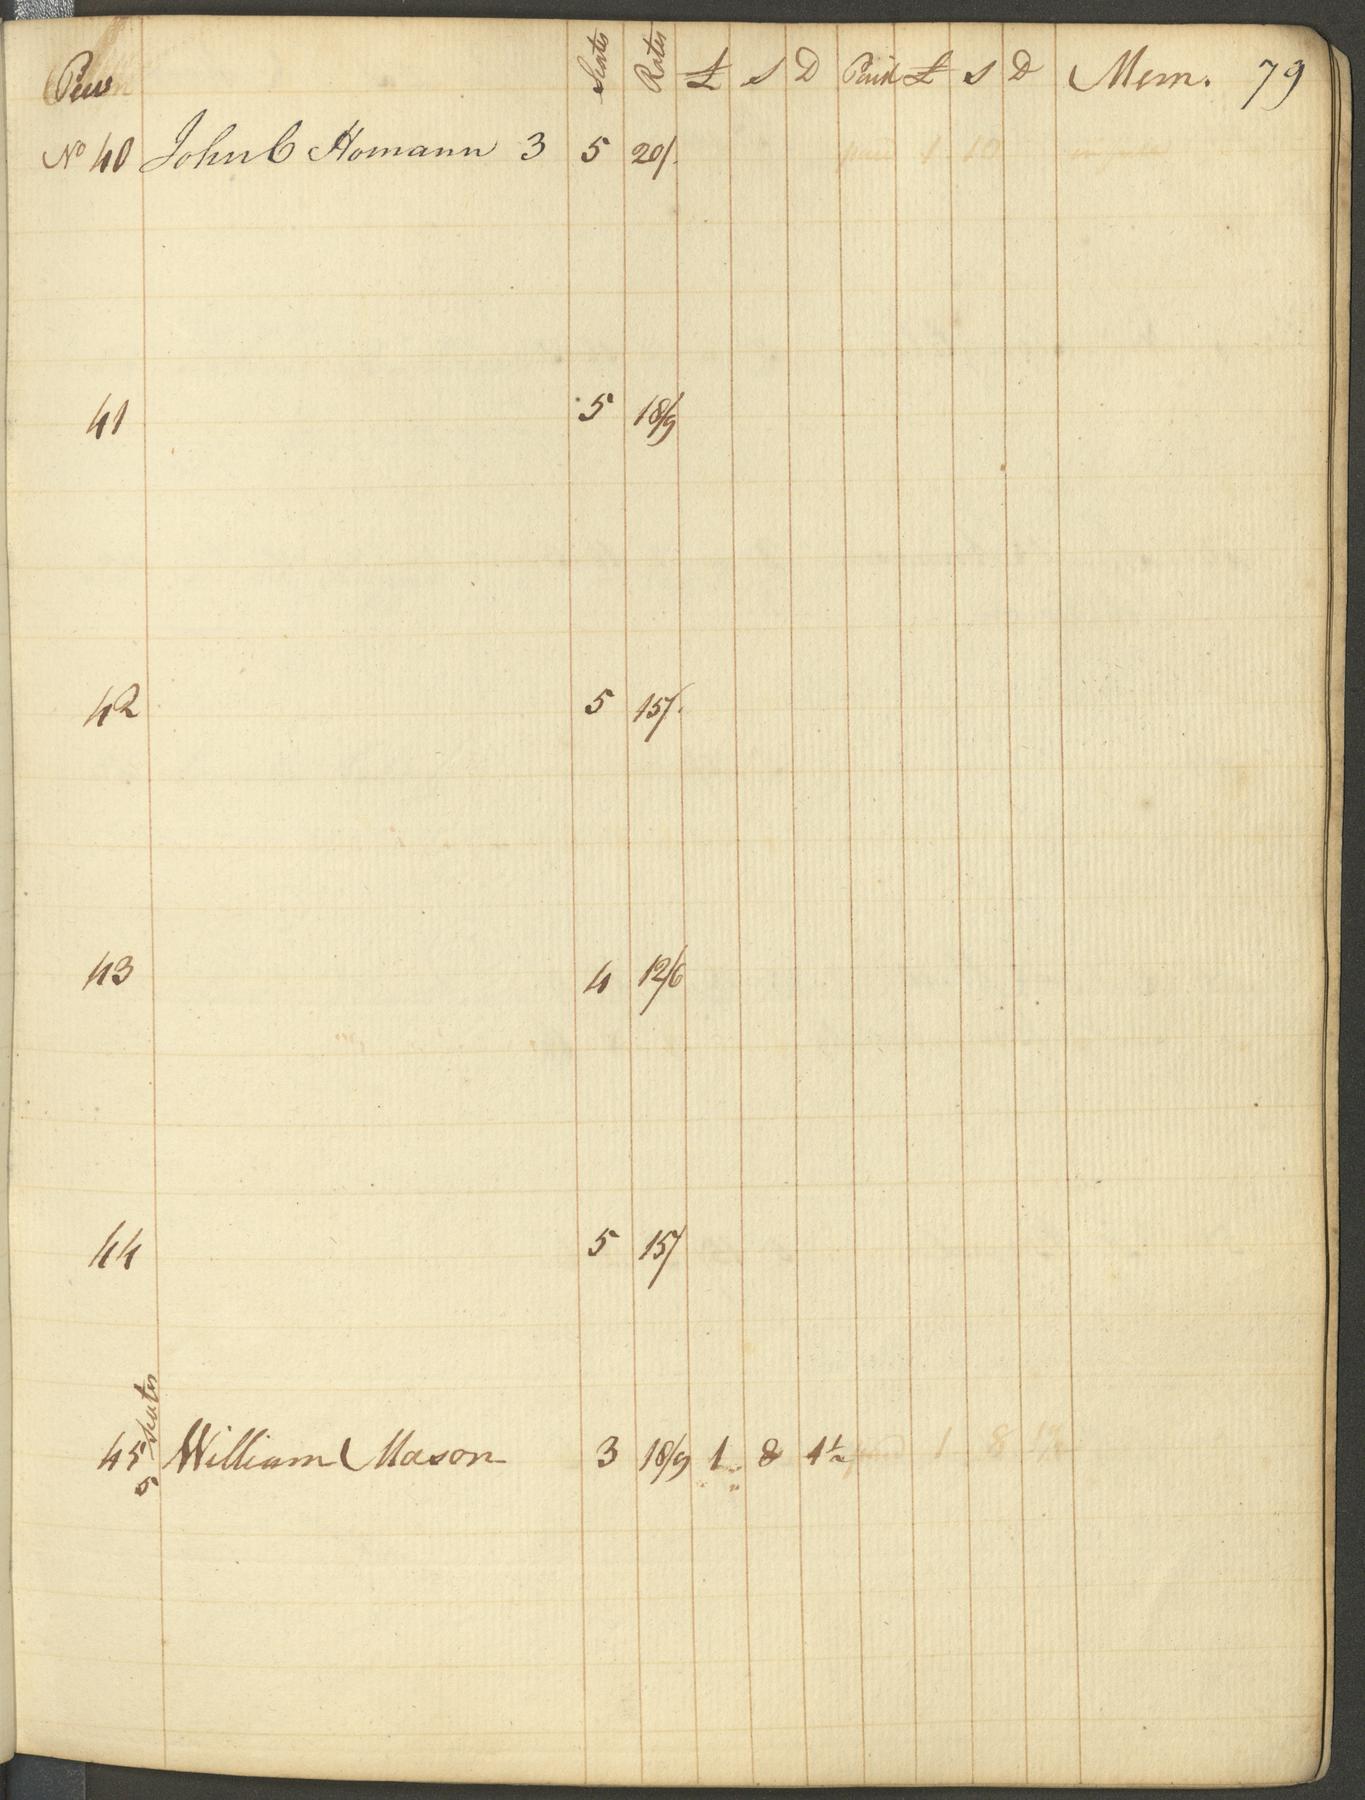 Pew Seates Rates £ S D Paid £ S D Mem. 79
No 40 John C Homann 3 5 20/. paid 1 10
41 5 18/9
42 5 15/.
43 4 12/6
44 5 15/
45 5 Seates William Mason 3 18/9 1 8 1½ paid 1 8 1½